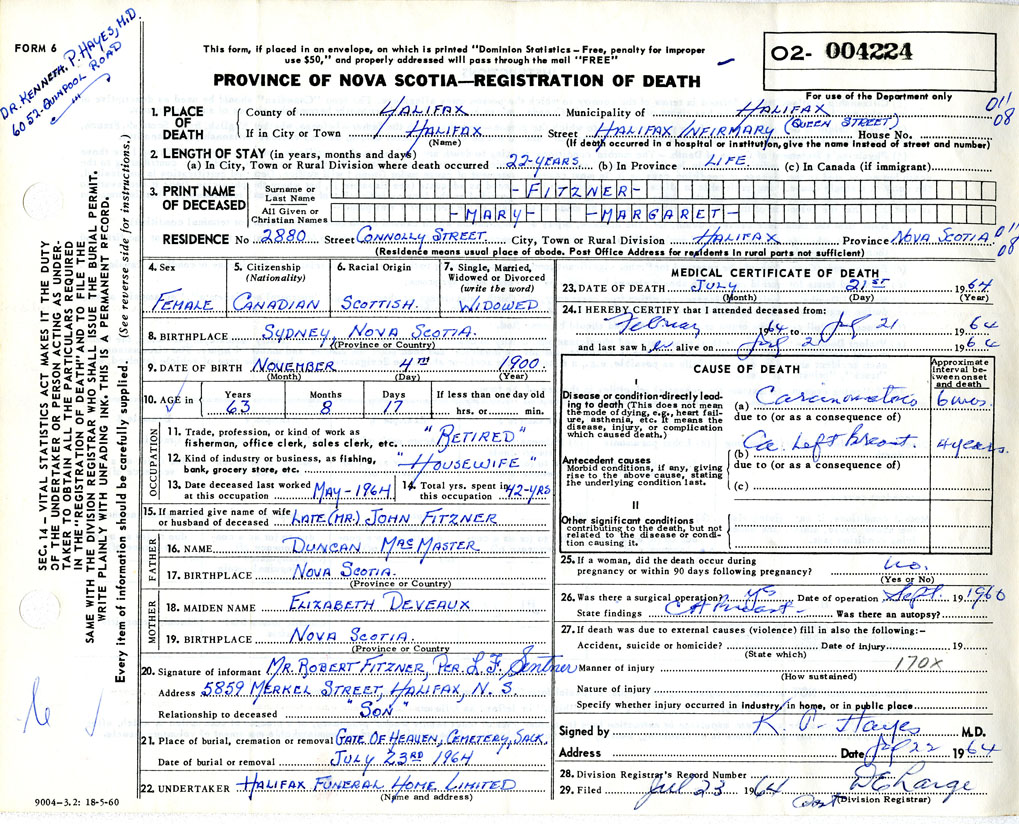 DR. KENNETH. P. HAYES, M.D.
6052-QUINPOOL ROAD
FORM 6
This form, if placed in an envelope, on which is printed "Dominion Statistics – Free, penalty for improper
use $50," and properly addressed will pass through the mail "FREE"
PROVINCE OF NOVA SCOTIA—REGISTRATION OF DEATH
O2- 004224
For use of the Department only
011
08
1. PLACE OF DEATH
County of HALIFAX Municipality of HALIFAX
If in City or Town HALIFAX Street HALIFAX INFIRMARY (QUEEN STREET) House No.
(Name) (If death occurred in a hospital or institution, give the name instead of street and number)
2. LENGTH OF STAY (in years, months and days)
(a) In City, Town or Rural Division where death occurred 22-YEARS (b) In Province LIFE. (c) In Canada (if immigrant)
3. PRINT NAME OF DECEASED
Surname or Last Name -FITZNER-
All Given or Christian Names -MARY- -MARGARET-
RESIDENCE No 2880 Street CONNOLLY STREET. City, Town or Rural Division HALIFAX Province NOVA SCOTIA
(Residence means usual place of abode. Post Office Address for residents in rural parts not sufficient)
011
08
4. Sex
FEMALE
5. Citizenship
(Nationality)
CANADIAN
6. Racial Origin
SCOTTISH.
7. Single, Married, Widowed or Divorced
(write the word)
WIDOWED
8. BIRTHPLACE SYDNEY, NOVA SCOTIA.
(Province or Country)
9. DATE OF BIRTH NOVEMBER 4TH 1900.
(Month) (Day) (Year)
10. AGE in Years Months Days If less than one day old
63 8 17 hrs. or min.
OCCUPATION
11. Trade, profession, or kind of work as
fisherman, office clerk, sales clerk, etc. "RETIRED"
12. Kind of industry or business, as fishing,
bank, grocery store, etc. "HOUSEWIFE"
13. Date deceased last worked at this occupation MAY-1964
14. Total yrs. spent in this occupation 42-YRS
15. If married give name of wife
or husband of deceased LATE (MR.) JOHN FITZNER
FATHER
16. NAME DUNCAN MACMASTER
17. BIRTHPLACE NOVA SCOTIA.
(Province or Country)
MOTHER
18. MAIDEN NAME ELIZABETH DEVEAUX
19. BIRTHPLACE NOVA SCOTIA.
(Province or Country)
20. Signature of informant MR. ROBERT FITZNER, PER. L. F. Sentner
Address 5859 MERKEL STREET, HALIFAX, N. S.
Relationship to deceased "SON"
21. Place of burial, cremation or removal GATE OF HEAVEN, CEMETERY, SACK,
Date of burial or removal JULY 23RD 1964
22. UNDERTAKER HALIFAX FUNERAL HOME LIMITED
(Name and address)
MEDICAL CERTIFICATE OF DEATH
23. DATE OF DEATH JULY 21ST 1964
(Month) (Day) (Year)
24. I HEREBY CERTIFY that I attended deceased from:
February 1964 to Jul 21 1964
and last saw her alive on Jul 21 1964
CAUSE OF DEATH
Approximate interval between onset and death
I
Disease or condition directly leading to death (This does not mean the mode of dying, e.g., heart failure, asthenia, etc. It means the disease, injury, or complication which caused death.)
(a) Carcinomatosis 6 mos.
due to (or as a consequence of)
(b) Ca. Left Breast. 4 years.
Antecedent causes
Morbid conditions, if any, giving rise to the above cause, stating the underlying condition last.
due to (or as a consequence of)
(c)
II
Other significant conditions
contributing to the death, but not related to the disease or condition causing it.
25. If a woman, did the death occur during
pregnancy or within 90 days following pregnancy? no.
(Yes or No)
26. Was there a surgical operation? yes Date of operation Sept. 1960
State findings CA Breast- Was there an autopsy?
27. If death was due to external causes (violence) fill in also the following:–
Accident, suicide or homicide? Date of injury 19
(State which)
Manner of injury 170X
(How sustained)
Nature of injury
Specify whether injury occurred in industry, in home, or in public place
Signed by K. P. Hayes M.D.
Address Date Jul 22 1964
28. Division Registrar's Record Number
29. Filed Jul 23 1964
(Division Registrar)
SEC. 14 – VITAL STATISTICS ACT MAKES IT THE DUTY
OF THE UNDERTAKER OR PERSON ACTING AS UNDER-
TAKER TO OBTAIN ALL THE PARTICULARS REQUIRED
IN THE "REGISTRATION OF DEATH" AND TO FILE THE
SAME WITH THE DIVISION REGISTRAR WHO SHALL ISSUE THE BURIAL PERMIT.
WRITE PLAINLY WITH UNFADING INK. THIS IS A PERMANENT RECORD.
Every item of information should be carefully supplied. (See reverse side for instructions.)
9004-3.2: 18-5-60